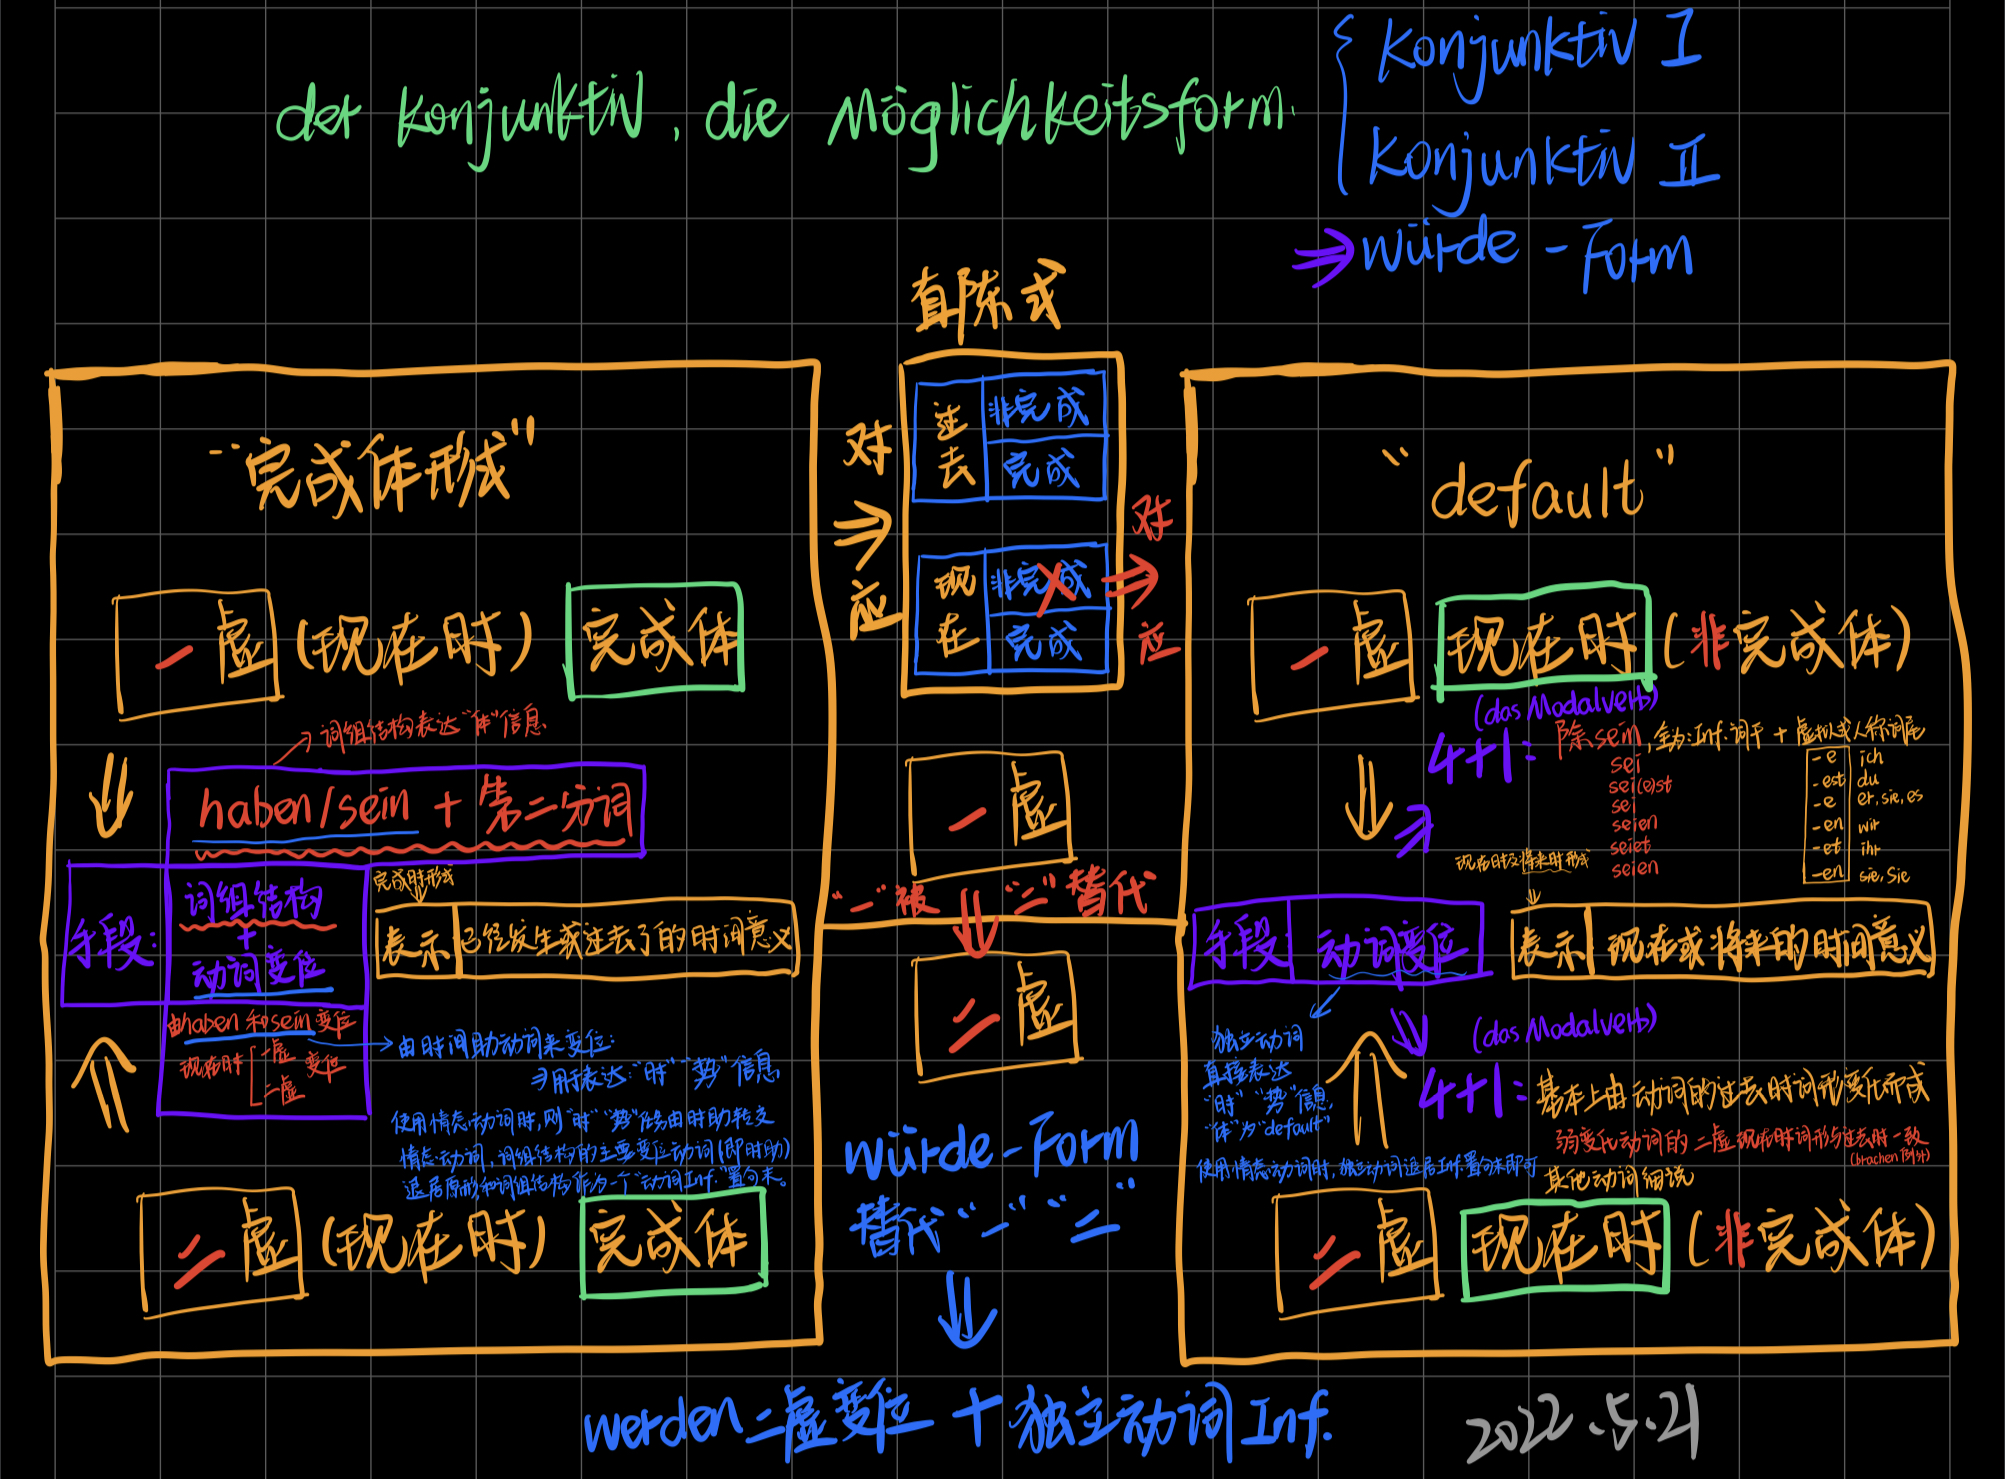 der Konjunktiv, die Möglichkeitsform.
Konjunktiv I
Konjunktiv II
⇒ würde - Form
直陈式
过去
非完成
完成
现在
非完成
完成
对应
对应
“完成体形式”
一虚 (现在时) 完成体
→ 词组结构表达“体”信息.
haben/sein + 第二分词
手段:
词组结构
+
动词变位
完成时形式
表示 已经发生或过去了的时间意义
由haben和sein变位
现在时
一虚
二虚
变位
→ 由时间助动词来变位:
用于表达:“时”“势”信息.
使用情态动词时,则“时”“势”仍由时助转交
情态动词,词组结构的主要变位动词(即时助)
退居原形和词组结构作为一个“动词Inf.”置句末。
二虚 (现在时) 完成体
一虚
“一”被 “二”替代
二虚
würde-Form
替代“一”“二”
werden二虚变位 + 独立动词Inf.
“default”
一虚 现在时 (非完成体)
(das Modalverb)
4+1: 除sein,全为:Inf.词干 + 虚拟式人称词尾
sei
sei(e)st
sei
seien
seiet
seien
-e ich
-est du
-e er,sie,es
-en wir
-et ihr
-en sie,Sie
现在时及将来时形式
手段: 动词变位
表示 现在或将来的时间意义
独立动词
直接表达
“时”“势”信息,
“体”为“default”
(das Modalverb)
4+1: 基本上由动词的过去时词形变化而成
弱变化动词的二虚现在时词形与过去时一致
(brachen例外)
使用情态动词时,独立动词退居Inf.置句末即可
其他动词细说
二虚 现在时 (非完成体)
2022.5.21